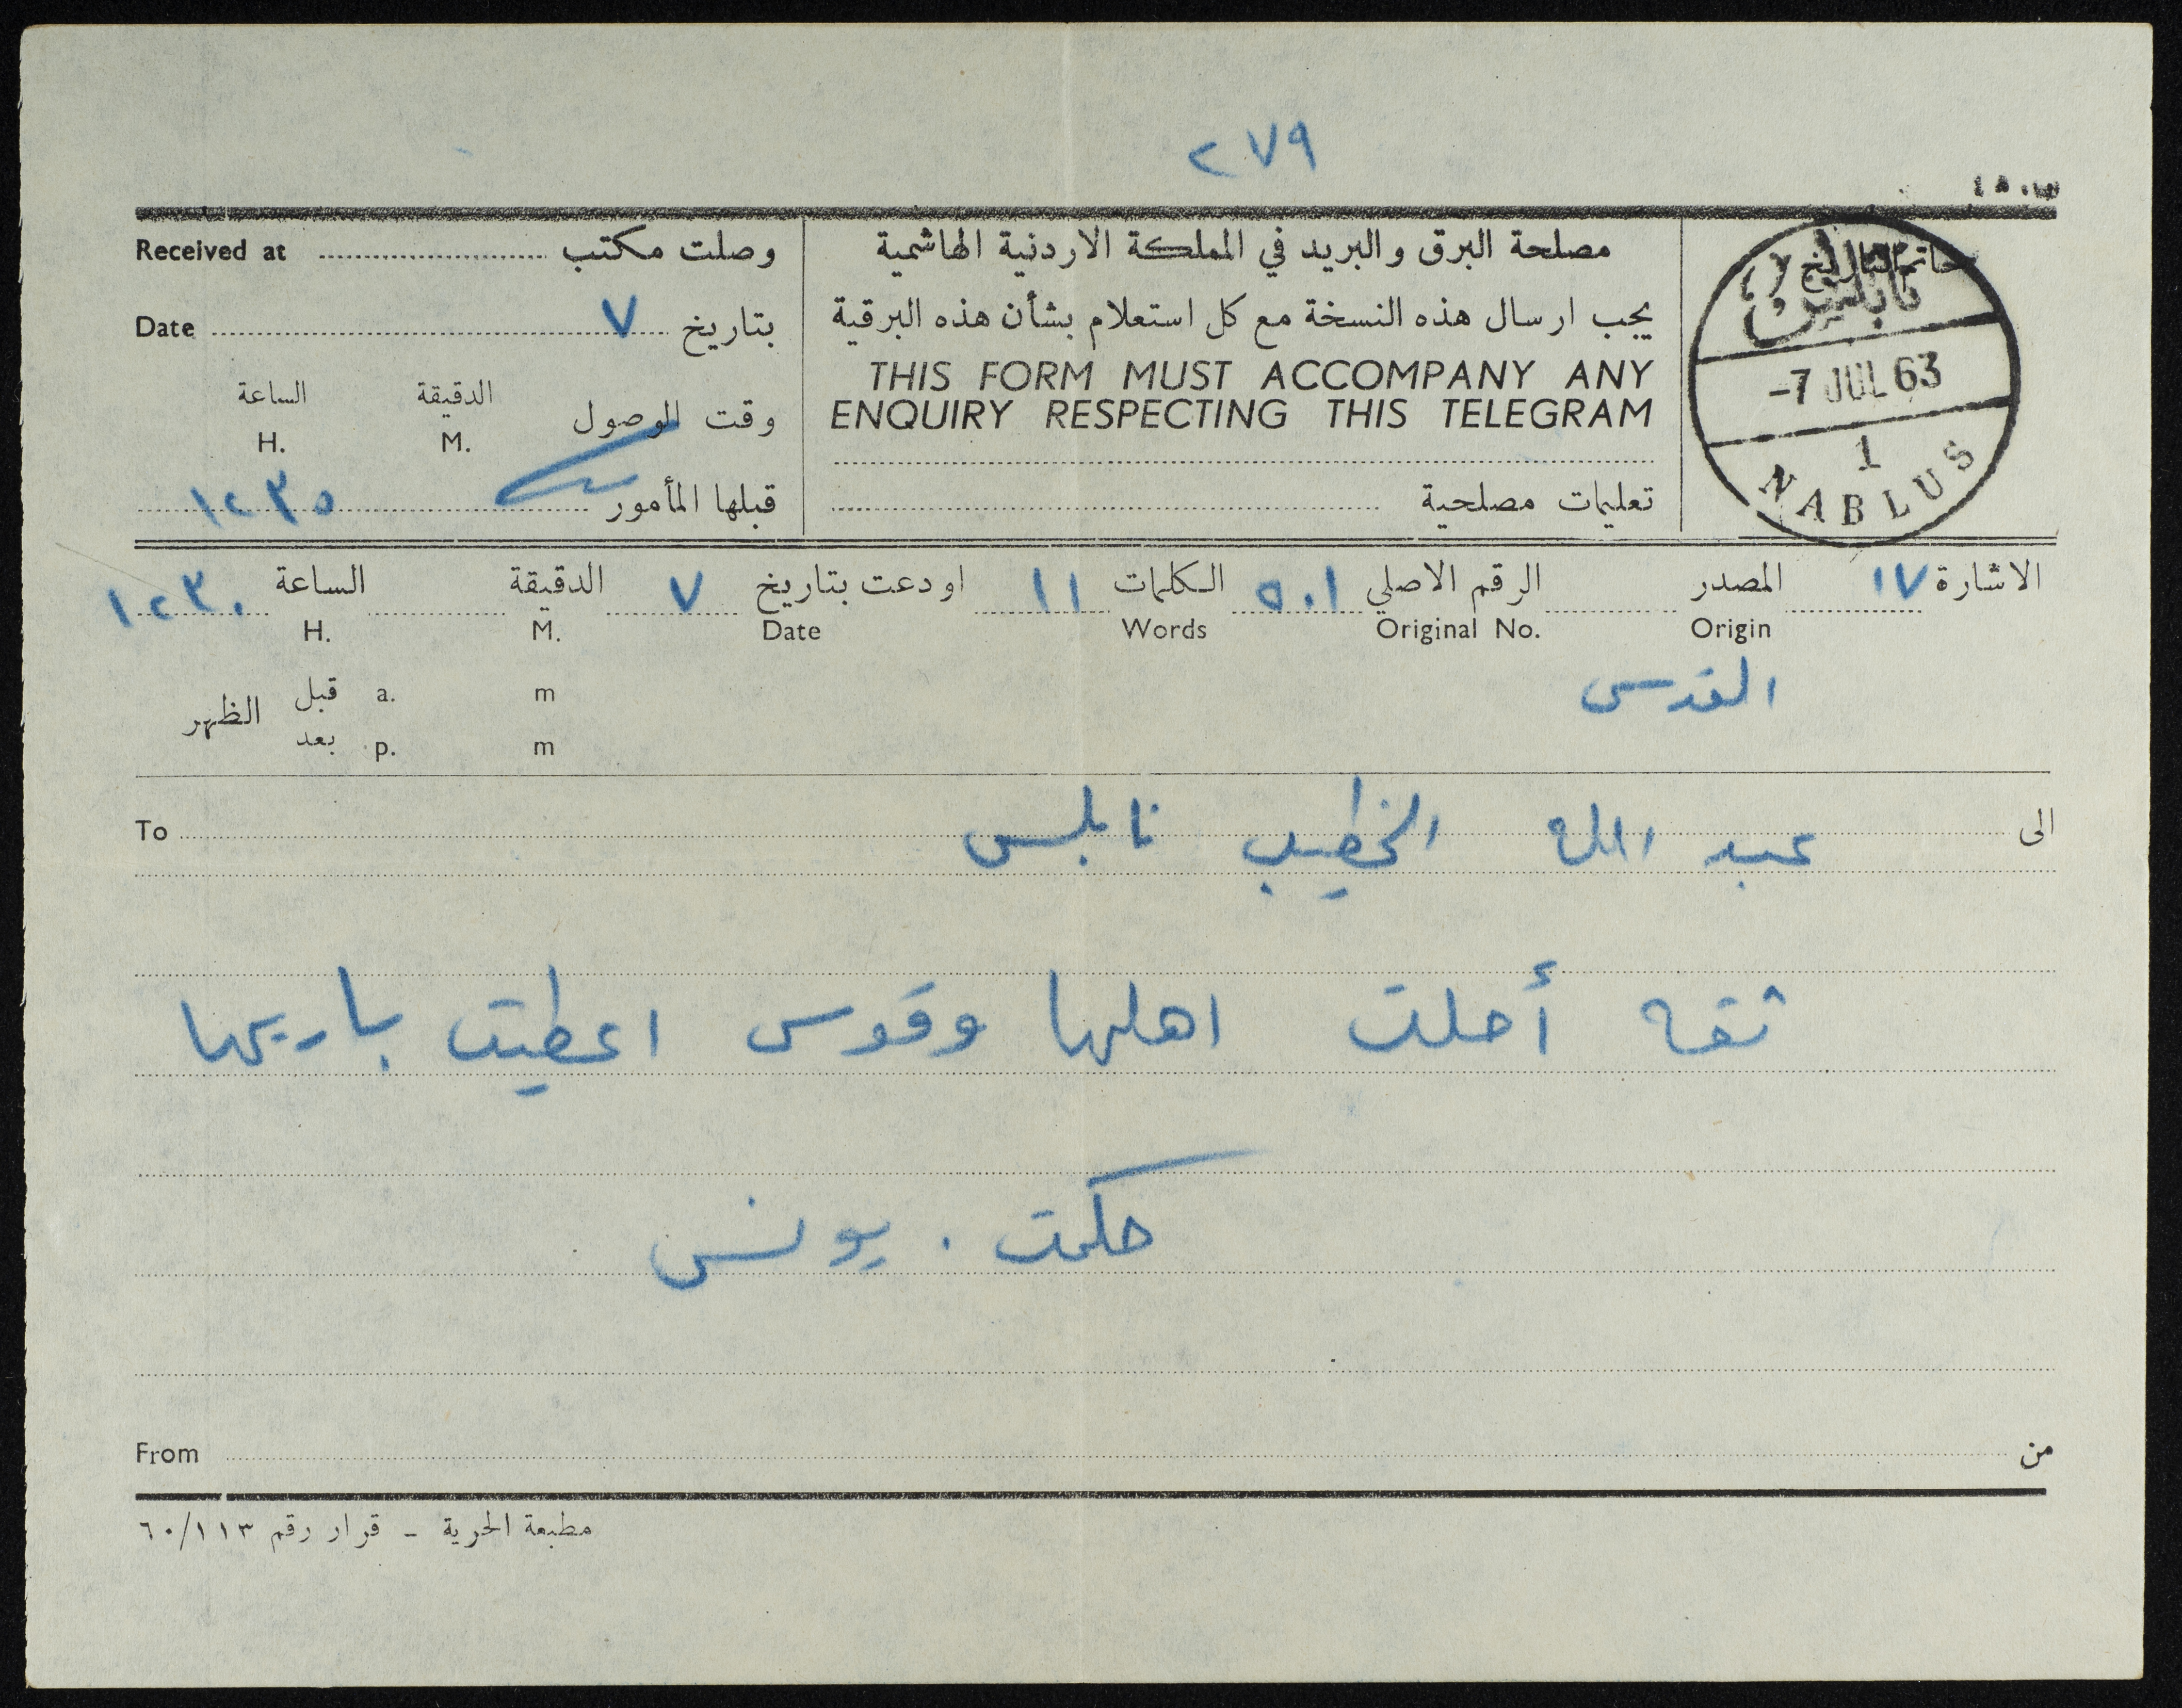 ٢٧٩
Received at وصلت مكتب
مصلحة البرق والبريد في المملكة الاردنية الهاشمية
خاتم التاريخ
نابلس
-7 JUL 63
1
NABLUS
Date ٧ بتاريخ
يجب ارسال هذه النسخة مع كل استعلام بشأن هذه البرقية
THIS FORM MUST ACCOMPANY ANY
ENQUIRY RESPECTING THIS TELEGRAM
وقت الوصول الدقيقة الساعة
H. M.
قبلها المأمور ١٢٣٥
تعليمات مصلحية
الاشارة ١٧ المصدر الرقم الاصلي ٥٠١ الكلمات ١١ اودعت بتاريخ ٧ الدقيقة الساعة ١٢٣٠
H. M. Date Words Original No. Origin
القدس
قبل a. m
الظهر
بعد p. m
To الى عبد الله الخطيب نابلس
ثقه أحلت اهلها وقوس اعطيت باريها
حكمت . يونس
From من
مطبعة الحرية - قرار رقم ٦٠/١١٣